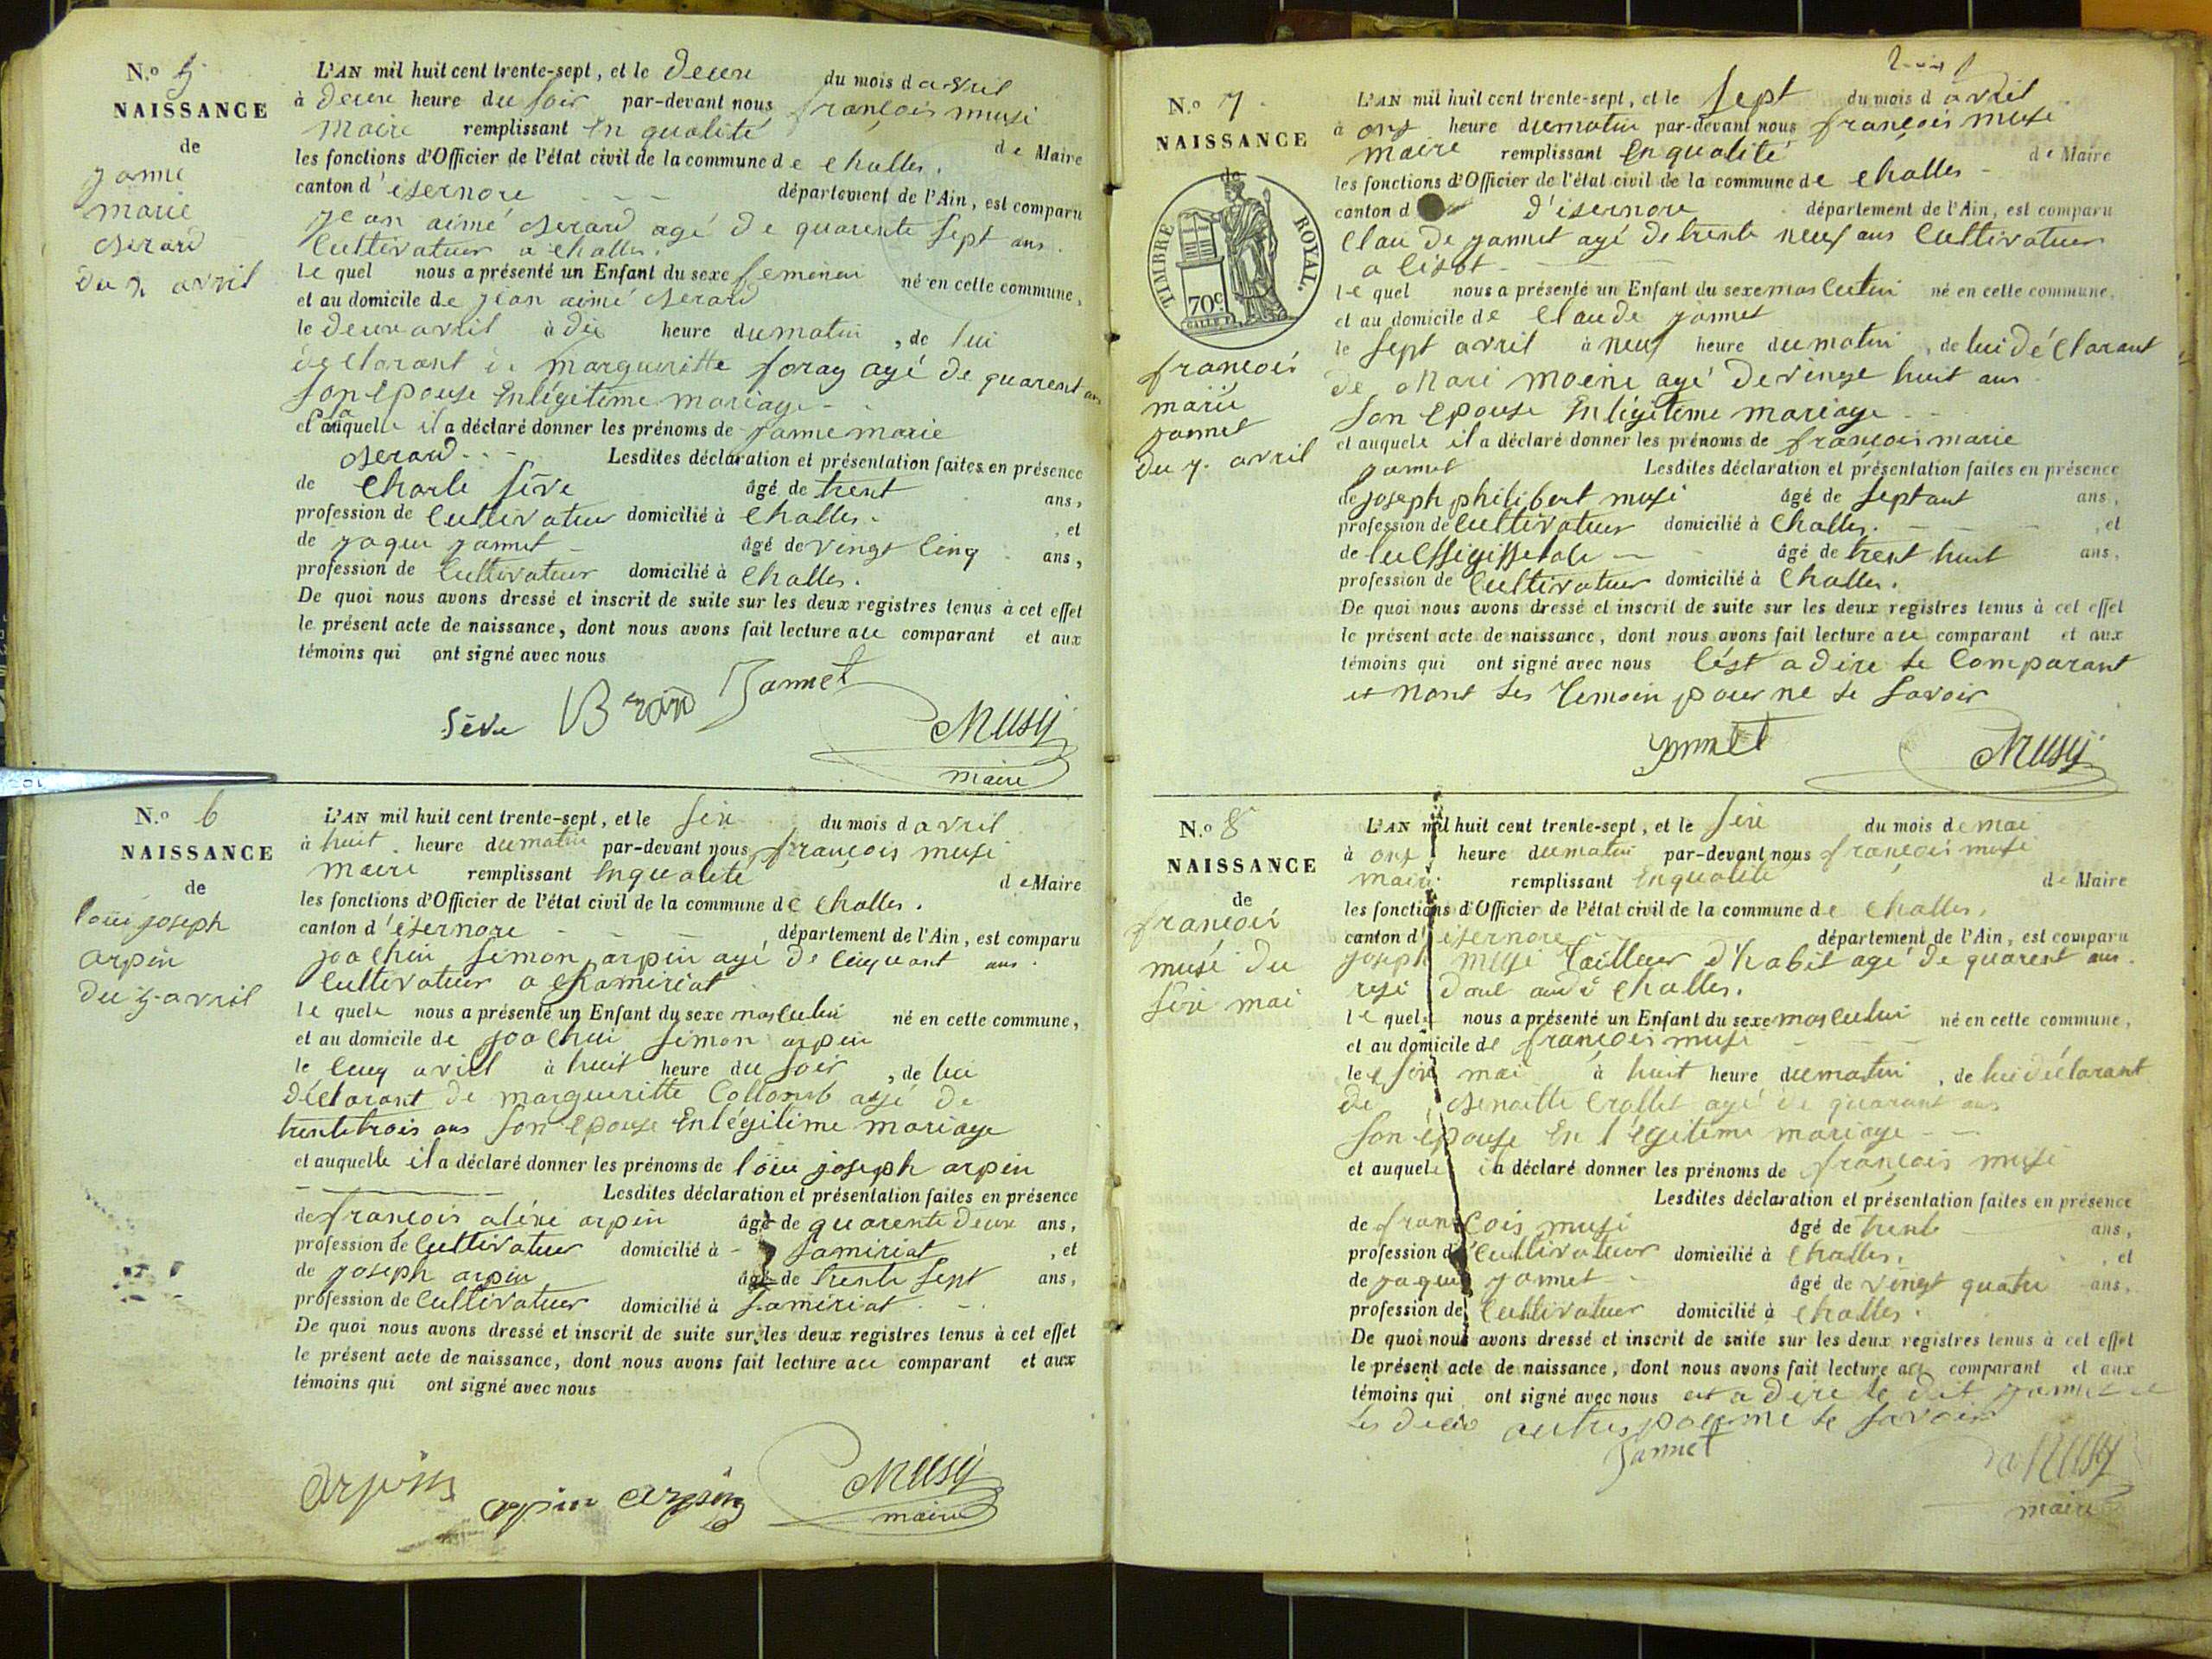 N.o 5
NAISSANCE
de
janne
marie
du 2 avril
L'AN mil huit cent trente-sept, et le deux du mois d avril
à deux heure du soir par-devant nous françois musi
maire remplissant en qualité de Maire
les fonctions d'Officier de l'état civil de la commune de challes.
canton d'isernore département de l'Ain, est comparu
jean aimé agé de quarente sept ans.
cultivateur a challes.
le quel nous a présenté un Enfant du sexe femenin né en cette commune,
et au domicile de jean aimé
le deux avril à dix heure du matin, de lui
declarant de margueritte foray agé de quarent ans
son epouse en légitime mariage
et a auquelle il a déclaré donner les prénoms de janne marie
Lesdites déclaration et présentation faites en présence
de charle sève âgé de trent ans,
profession de cultivateur domicilié à challes. , et
de jaque jannet âgé de vingt cinq ans,
profession de cultivateur domicilié à challes.
De quoi nous avons dressé et inscrit de suite sur les deux registres tenus à cet effet
le présent acte de naissance, dont nous avons fait lecture au comparant et aux
témoins qui ont signé avec nous
sève Jannet
Musy
maire
N.o 6
NAISSANCE
de
loui joseph
arpin
du 5 avril
L'AN mil huit cent trente-sept, et le six du mois d avril
à huit heure du matin par-devant nous françois musi
maire remplissant en qualité de Maire
les fonctions d'Officier de l'état civil de la commune de challes.
canton d'isernore département de l'Ain, est comparu
joachin simon arpin agé de cinquant ans.
cultivateur a chamiriat
le quele nous a présenté un Enfant du sexe masculin né en cette commune,
et au domicile de joachin simon arpin
le cinq avril à huit heure du soir, de lui
déclarant de margueritte Collomb agé de
trente trois ans son epouse en légitime mariage
et auquelle il a déclaré donner les prénoms de loui joseph arpin
Lesdites déclaration et présentation faites en présence
de françois arpin âgé de quarente deux ans,
profession de cultivateur domicilié à samiriat , et
de joseph arpin âgé de trente sept ans,
profession de cultivateur domicilié à samiriat
De quoi nous avons dressé et inscrit de suite sur les deux registres tenus à cet effet
le présent acte de naissance, dont nous avons fait lecture au comparant et aux
témoins qui ont signé avec nous
arpin arpin arpin
Musy
maire
N.o 7
NAISSANCE
de
TIMBRE ROYAL.
70c
françois
marie
jannet
du 7. avril
L'AN mil huit cent trente-sept, et le sept du mois d avril
à onz heure du matin par-devant nous françois musi
maire remplissant en qualité de Maire
les fonctions d'Officier de l'état civil de la commune de challes
canton d d'isernore département de l'Ain, est comparu
claude jannet agé de trente neuf ans cultivateur
le quel nous a présenté un Enfant du sexe masculin né en cette commune,
et au domicile de claude jannet
le sept avril à neuf heure du matin, de lui déclarant
de mari moine agé de vingt huit ans
son epouse en légitime mariage
et auquele il a déclaré donner les prénoms de françois marie
jannet Lesdites déclaration et présentation faites en présence
de joseph philibert musi âgé de septant ans,
profession de cultivateur domicilié à challes. , et
de âgé de trent huit ans,
profession de cultivateur domicilié à challes.
De quoi nous avons dressé et inscrit de suite sur les deux registres tenus à cet effet
le présent acte de naissance, dont nous avons fait lecture au comparant et aux
témoins qui ont signé avec nous cést a dire le comparant
et nont les temoin pour ne le savoir
jannet
Musy
N.o 8
NAISSANCE
de
françois
musi du
six mai
L'AN mil huit cent trente-sept, et le six du mois de mai
à onz heure du matin par-devant nous françois musi
maire remplissant en qualité de Maire
les fonctions d'Officier de l'état civil de la commune de challes,
canton d'isernore département de l'Ain, est comparu
joseph musi tailleur d'habit agé de quarent ans.
challes.
le quele nous a présenté un Enfant du sexe masculin né en cette commune,
et au domicile de françois musi
le six mai à huit heure du matin, de lui déclarant
de agé de quarant ans
son épouse en légitime mariage
et auquele il a déclaré donner les prénoms de françois musi
Lesdites déclaration et présentation faites en présence
de françois musi âgé de trente ans,
profession de cultivateur domicilié à challes. , et
de jaque jannet âgé de vingt quatre ans,
profession de cultivateur domicilié à challes.
De quoi nous avons dressé et inscrit de suite sur les deux registres tenus à cet effet
le présent acte de naissance, dont nous avons fait lecture au comparant et aux
témoins qui ont signé avec nous est a dire le dit jannet
les deux autres pour ne le savoir
Jannet
Musy
maire